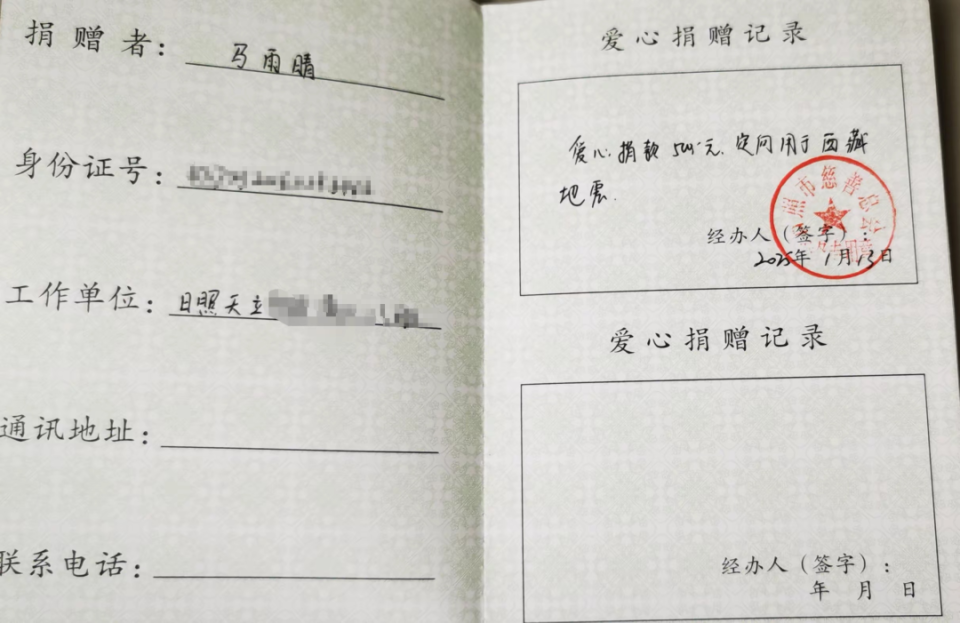 捐赠者：马雨晴
身份证号：
工作单位：日照天立
通讯地址：
联系电话：
爱心捐赠记录
爱心捐款 元，定向用于西藏
地震.
经办人（签字）：
2025年1月13日
日照市慈善总会
爱心捐赠记录
经办人（签字）：
年 月 日